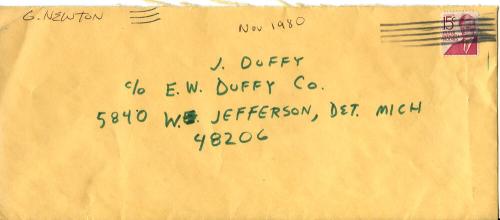 G. NEWTON
Nov 1980
15¢
J. DUFFY
c/o E. W. DUFFY CO.
5840 W. JEFFERSON, DET. MICH
48206